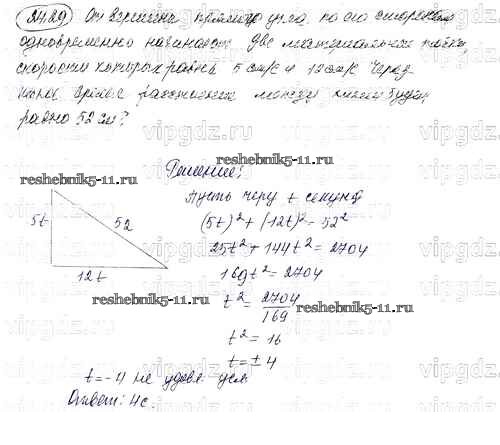 24.29 От вершины прямого угла по его сторонам
одновременно начинают две материальные точки,
скорости которых равны 5 см/с и 12 см/с. Через
какое время расстояние между ними будет
равно 52 см?
vipgdz.ru
reshebnik5-11.ru
Решение:
Пусть через t секунд
reshebnik5-11.ru
(5t)² + (12t)² = 52²
5t
52
25t² + 144t² = 2704
12t
169t² = 2704
reshebnik5-11.ru
t² = 2704/169
reshebnik5-11.ru
t² = 16
t = ± 4
t = -4 не удовл усл
Ответ: 4с.